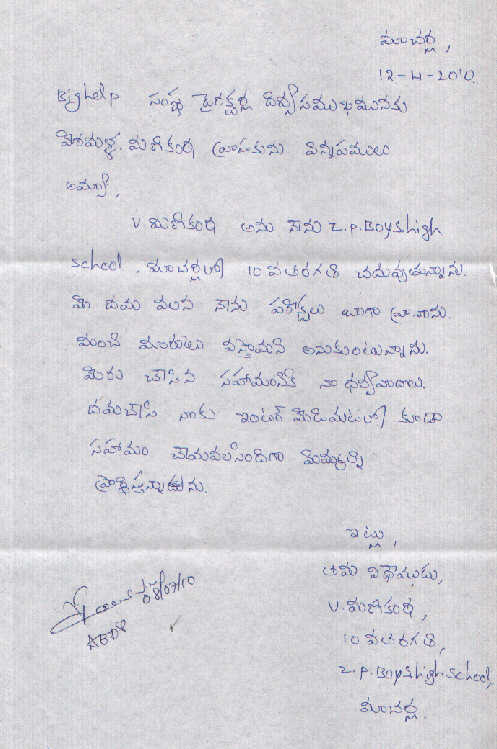 మాచర్ల,
12-4-2010.
Bighelp సంస్థ డైరెక్టర్ దివ్యసముఖమునకు
వి. మణికంఠ వ్రాసుకున్న విన్నపములు
అమ్మా,
V. మణికంఠ అను నేను Z.P. Boys high
school, మాచర్లలో 10 వతరగతి చదువుతున్నాను.
మీ దయ వలన నేను పరీక్షలు బాగా వ్రాశాను.
మంచి మార్కులు వస్తాయని అనుకుంటున్నాను.
మీరు చేసిన సహాయానికి నా ధన్యవాదాలు.
దయచేసి నాకు ఇంటర్ మీడియట్ లో కూడా
సహాయం చేయవలసిందిగా మిమ్మల్ని
ప్రార్థిస్తున్నాను.
ఇట్లు,
తమ విధేయుడు,
V. మణికంఠ,
10 వతరగతి,
Z.P. Boys high school,
మాచర్ల.
08/07/10